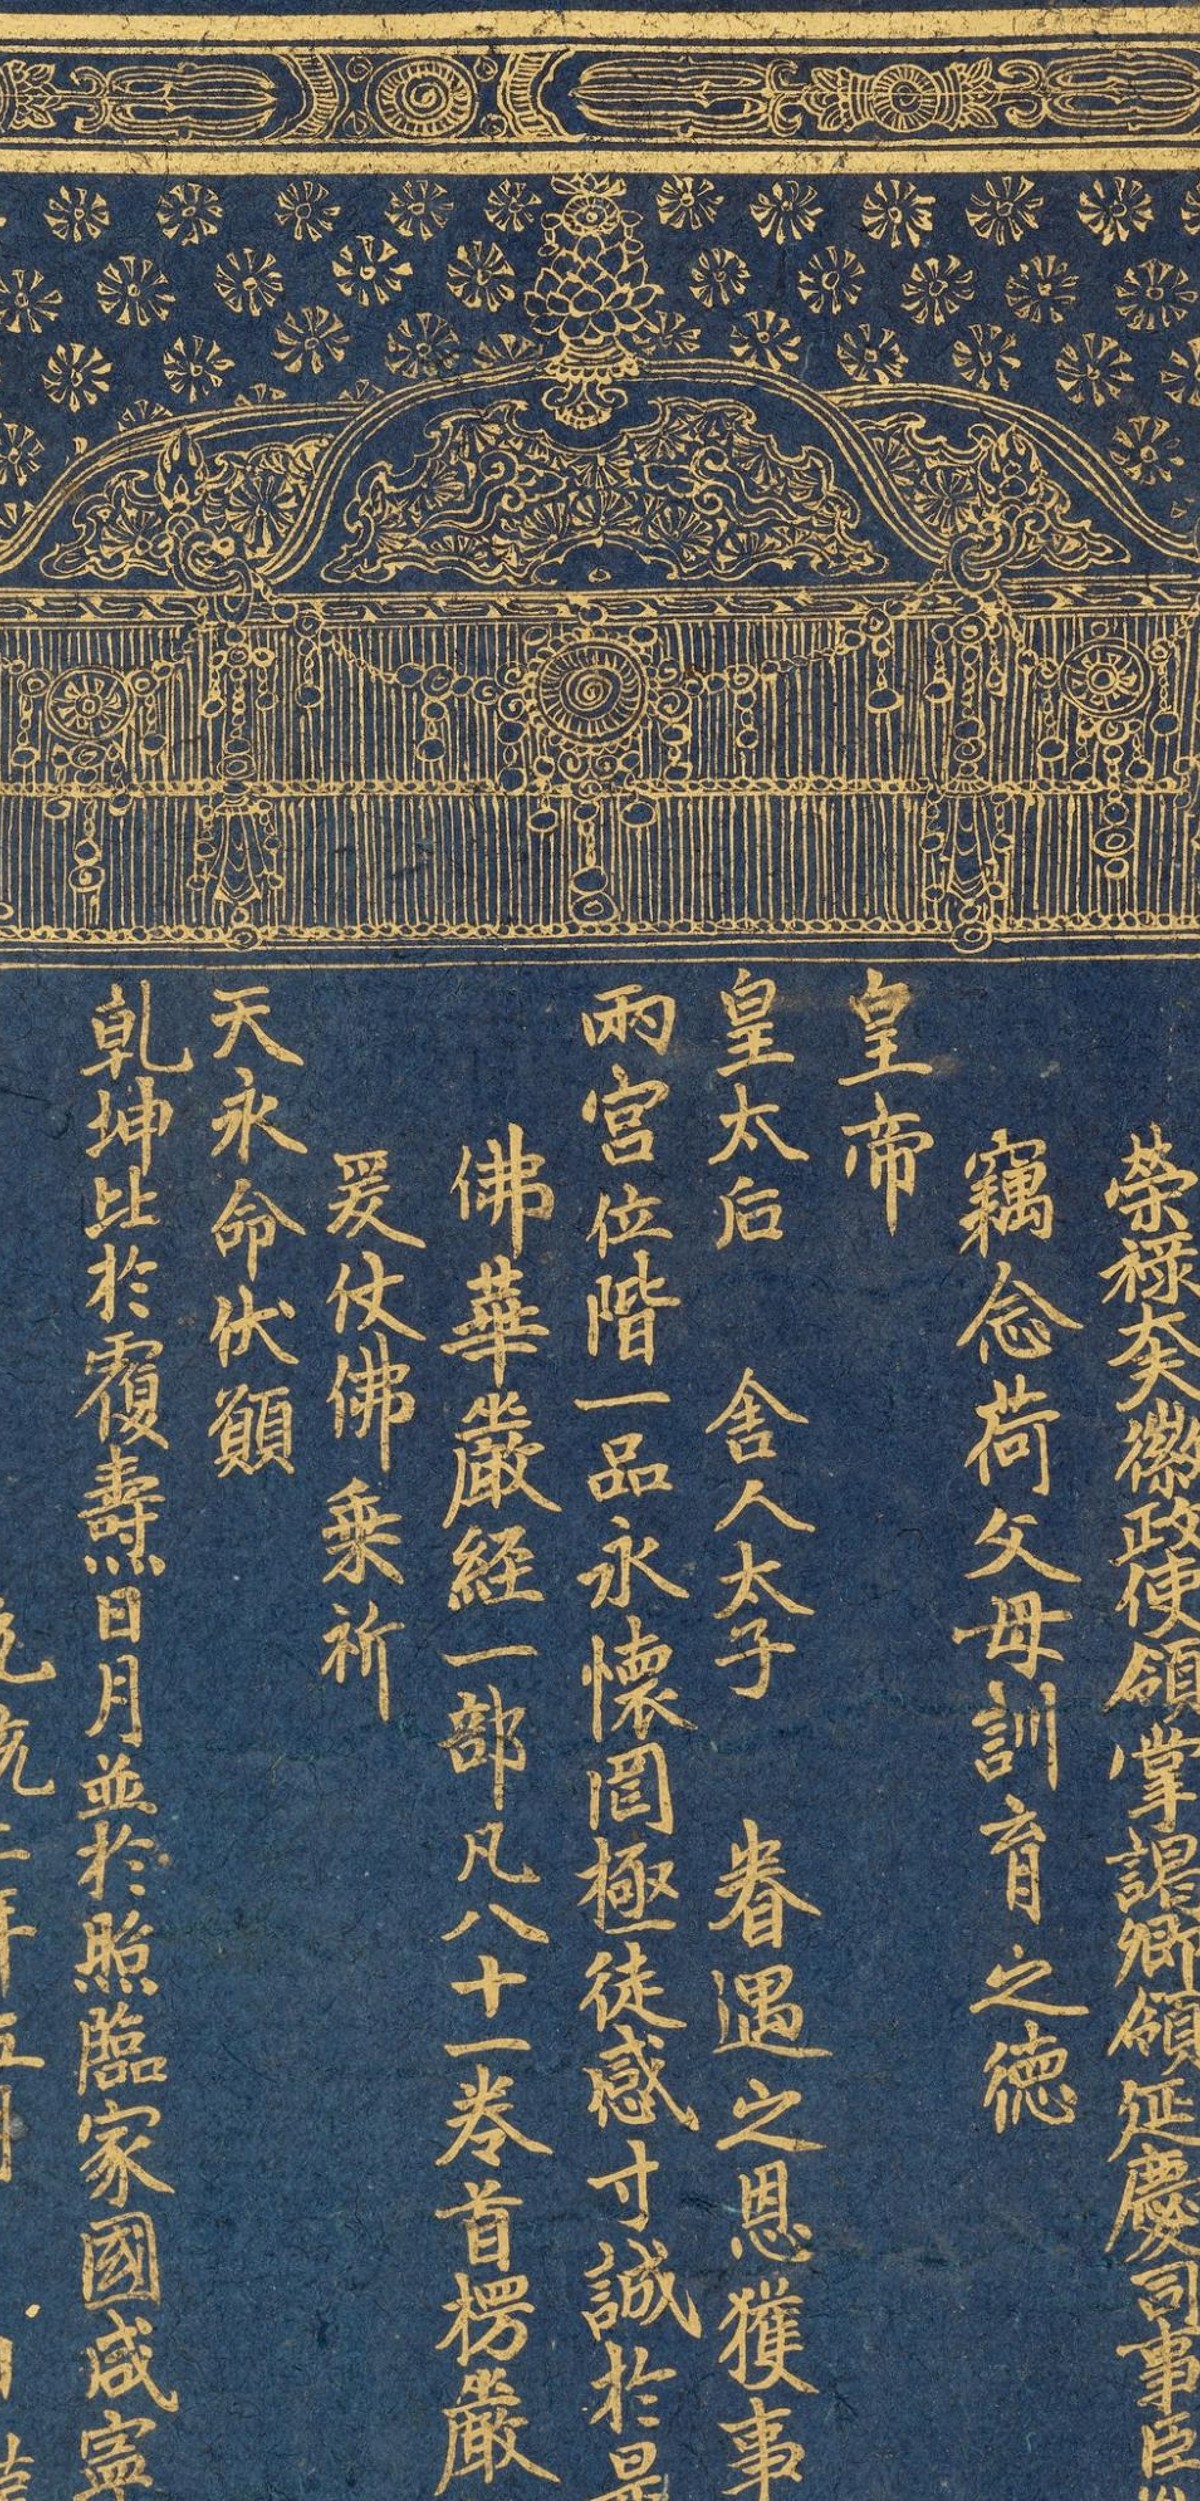 榮祿大夫徽政使領掌謁卿領延慶司事臣
竊念荷父母訓育之德
皇帝
皇太后　舍人太子　眷遇之恩獲事
兩宮位階一品永懷罔極徒感寸誠於是
佛華嚴經一部凡八十一卷首楞嚴
爰仗佛乘祈
天永命伏願
乾坤比於覆壽日月並於照臨家國咸寧
元統二年五月